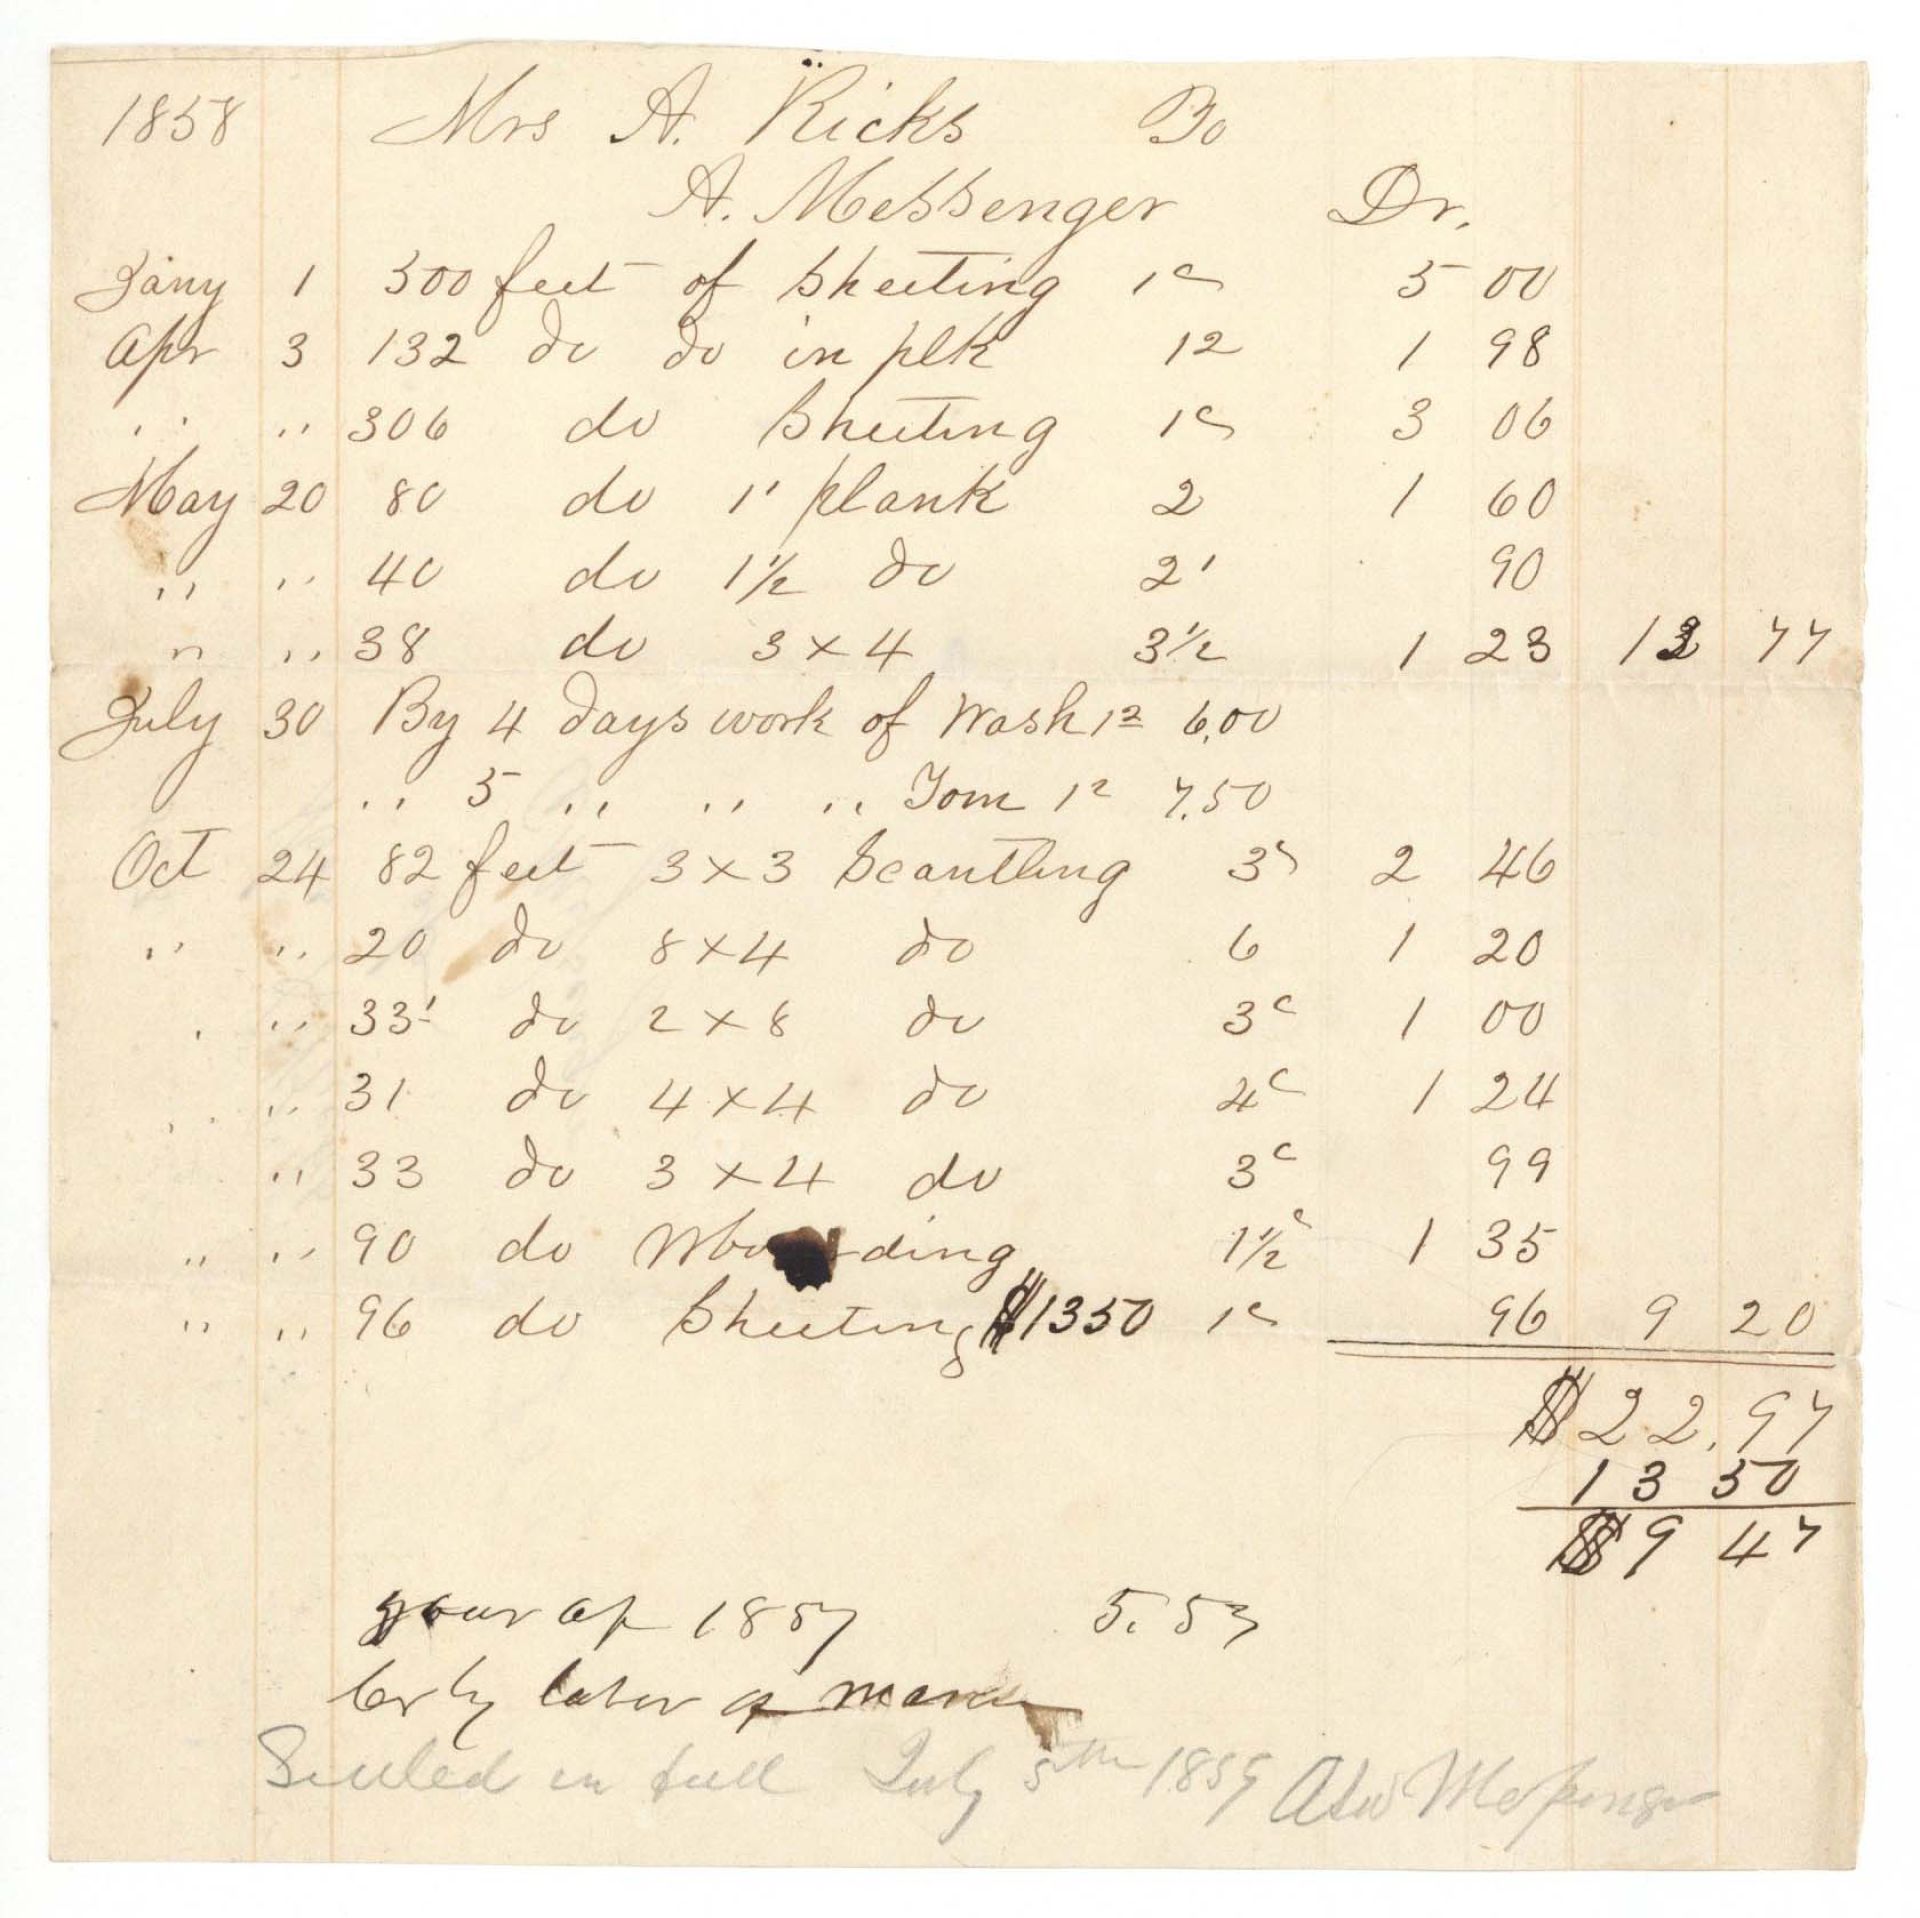 1858 Mrs A. Ricks To
A. Messenger Dr.
Jany 1 500 feet of Sheeting 1c 5 00
Apr 3 132 do do in plk 12 1 98
" " 306 do Sheeting 1c 3 06
May 20 80 do 1' plank 2 1 60
" " 40 do 1½ do 2' 90
" " 38 do 3x4 3½ 1 23 13 77
July 30 By 4 days work of Wash 12 6,00
" 5 " " " Tom 12 7.50
Oct 24 82 feet 3x3 Scantling 3c 2 46
" " 20 do 8x4 do 6 1 20
" " 33' do 2x8 do 3c 1 00
" " 31 do 4x4 do 4c 1 24
" 33 do 3x4 do 3c 99
" " 90 do 1½c 1 35
" " 96 do Sheeting $1350 1c 96 9 20
$22.97
13 50
$9 47
your 1857 5.53
by labor
Settled in full July 5th 1859 Messenger